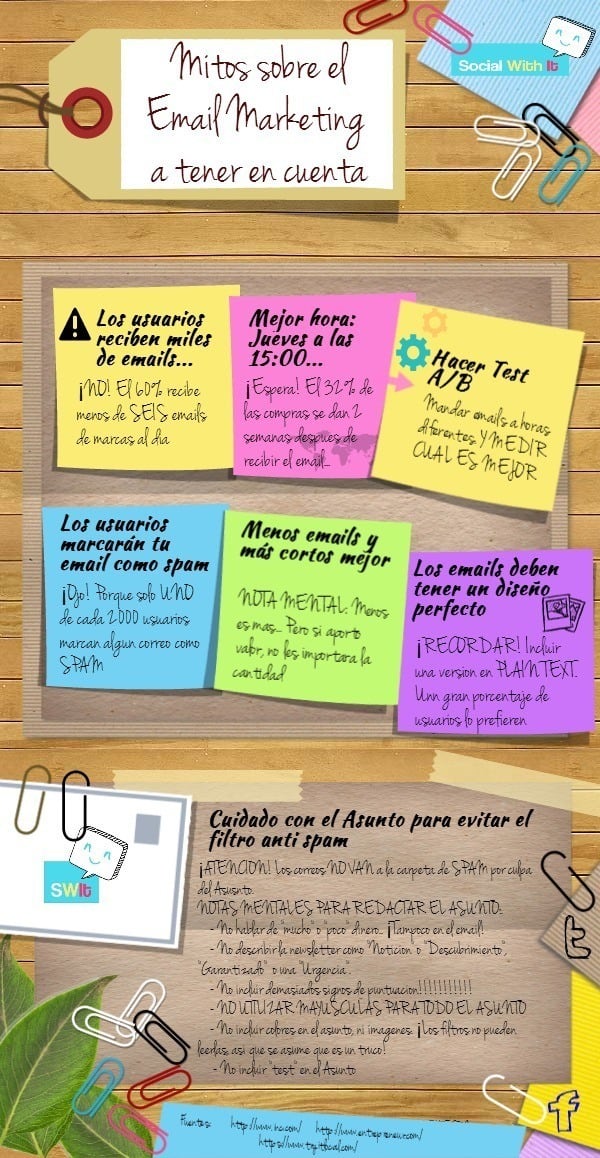 Social With It
Mitos sobre el
Email Marketing
a tener en cuenta
Los usuarios
reciben miles
de emails...
¡NO! El 60% recibe
menos de SEIS emails
de marcas al dia
Mejor hora:
Jueves a las
15:00...
¡Espera! El 32% de
las compras se dan 2
semanas despues de
recibir el email...
Hacer Test
A/B
Mandar emails a horas
diferentes Y MEDIR
CUAL ES MEJOR
Los usuarios
marcarán tu
email como spam
¡Ojo! Porque solo UNO
de cada 2000 usuarios
marcan algun correo como
SPAM
Menos emails y
más cortos mejor
NOTA MENTAL: Menos
es mas... Pero si aporta
valor, no les importara la
cantidad
Los emails deben
tener un diseño
perfecto
¡RECORDAR! Incluir
una version en PLAIN TEXT.
Unn gran porcentaje de
usuarios lo prefieren
SWIt
Cuidado con el Asunto para evitar el
filtro anti spam
¡ATENCION! Los correos NO VAN a la carpeta de SPAM por culpa
del Asusnto.
NOTAS MENTALES PARA REDACTAR EL ASUNTO:
- No hablar de "mucho" o "poco" dinero... ¡Tampoco en el email!
- No describir la newsletter como "Noticion" o "Descubrimiento",
"Garantizado" o una "Urgencia"
- No incluir demasiados signos de puntuacion!!!!!!!!!!!!
- NO UTILIZAR MAYUSCULAS PARA TODO EL ASUNTO
- No incluir colores en el asunto, ni imagenes: ¡Los filtros no pueden
leerlas, asi que se asume que es un truco!
- No incluir "test" en el Asunto
Fuentes: http://www.inc.com/ http://www.entrepreneur.com/